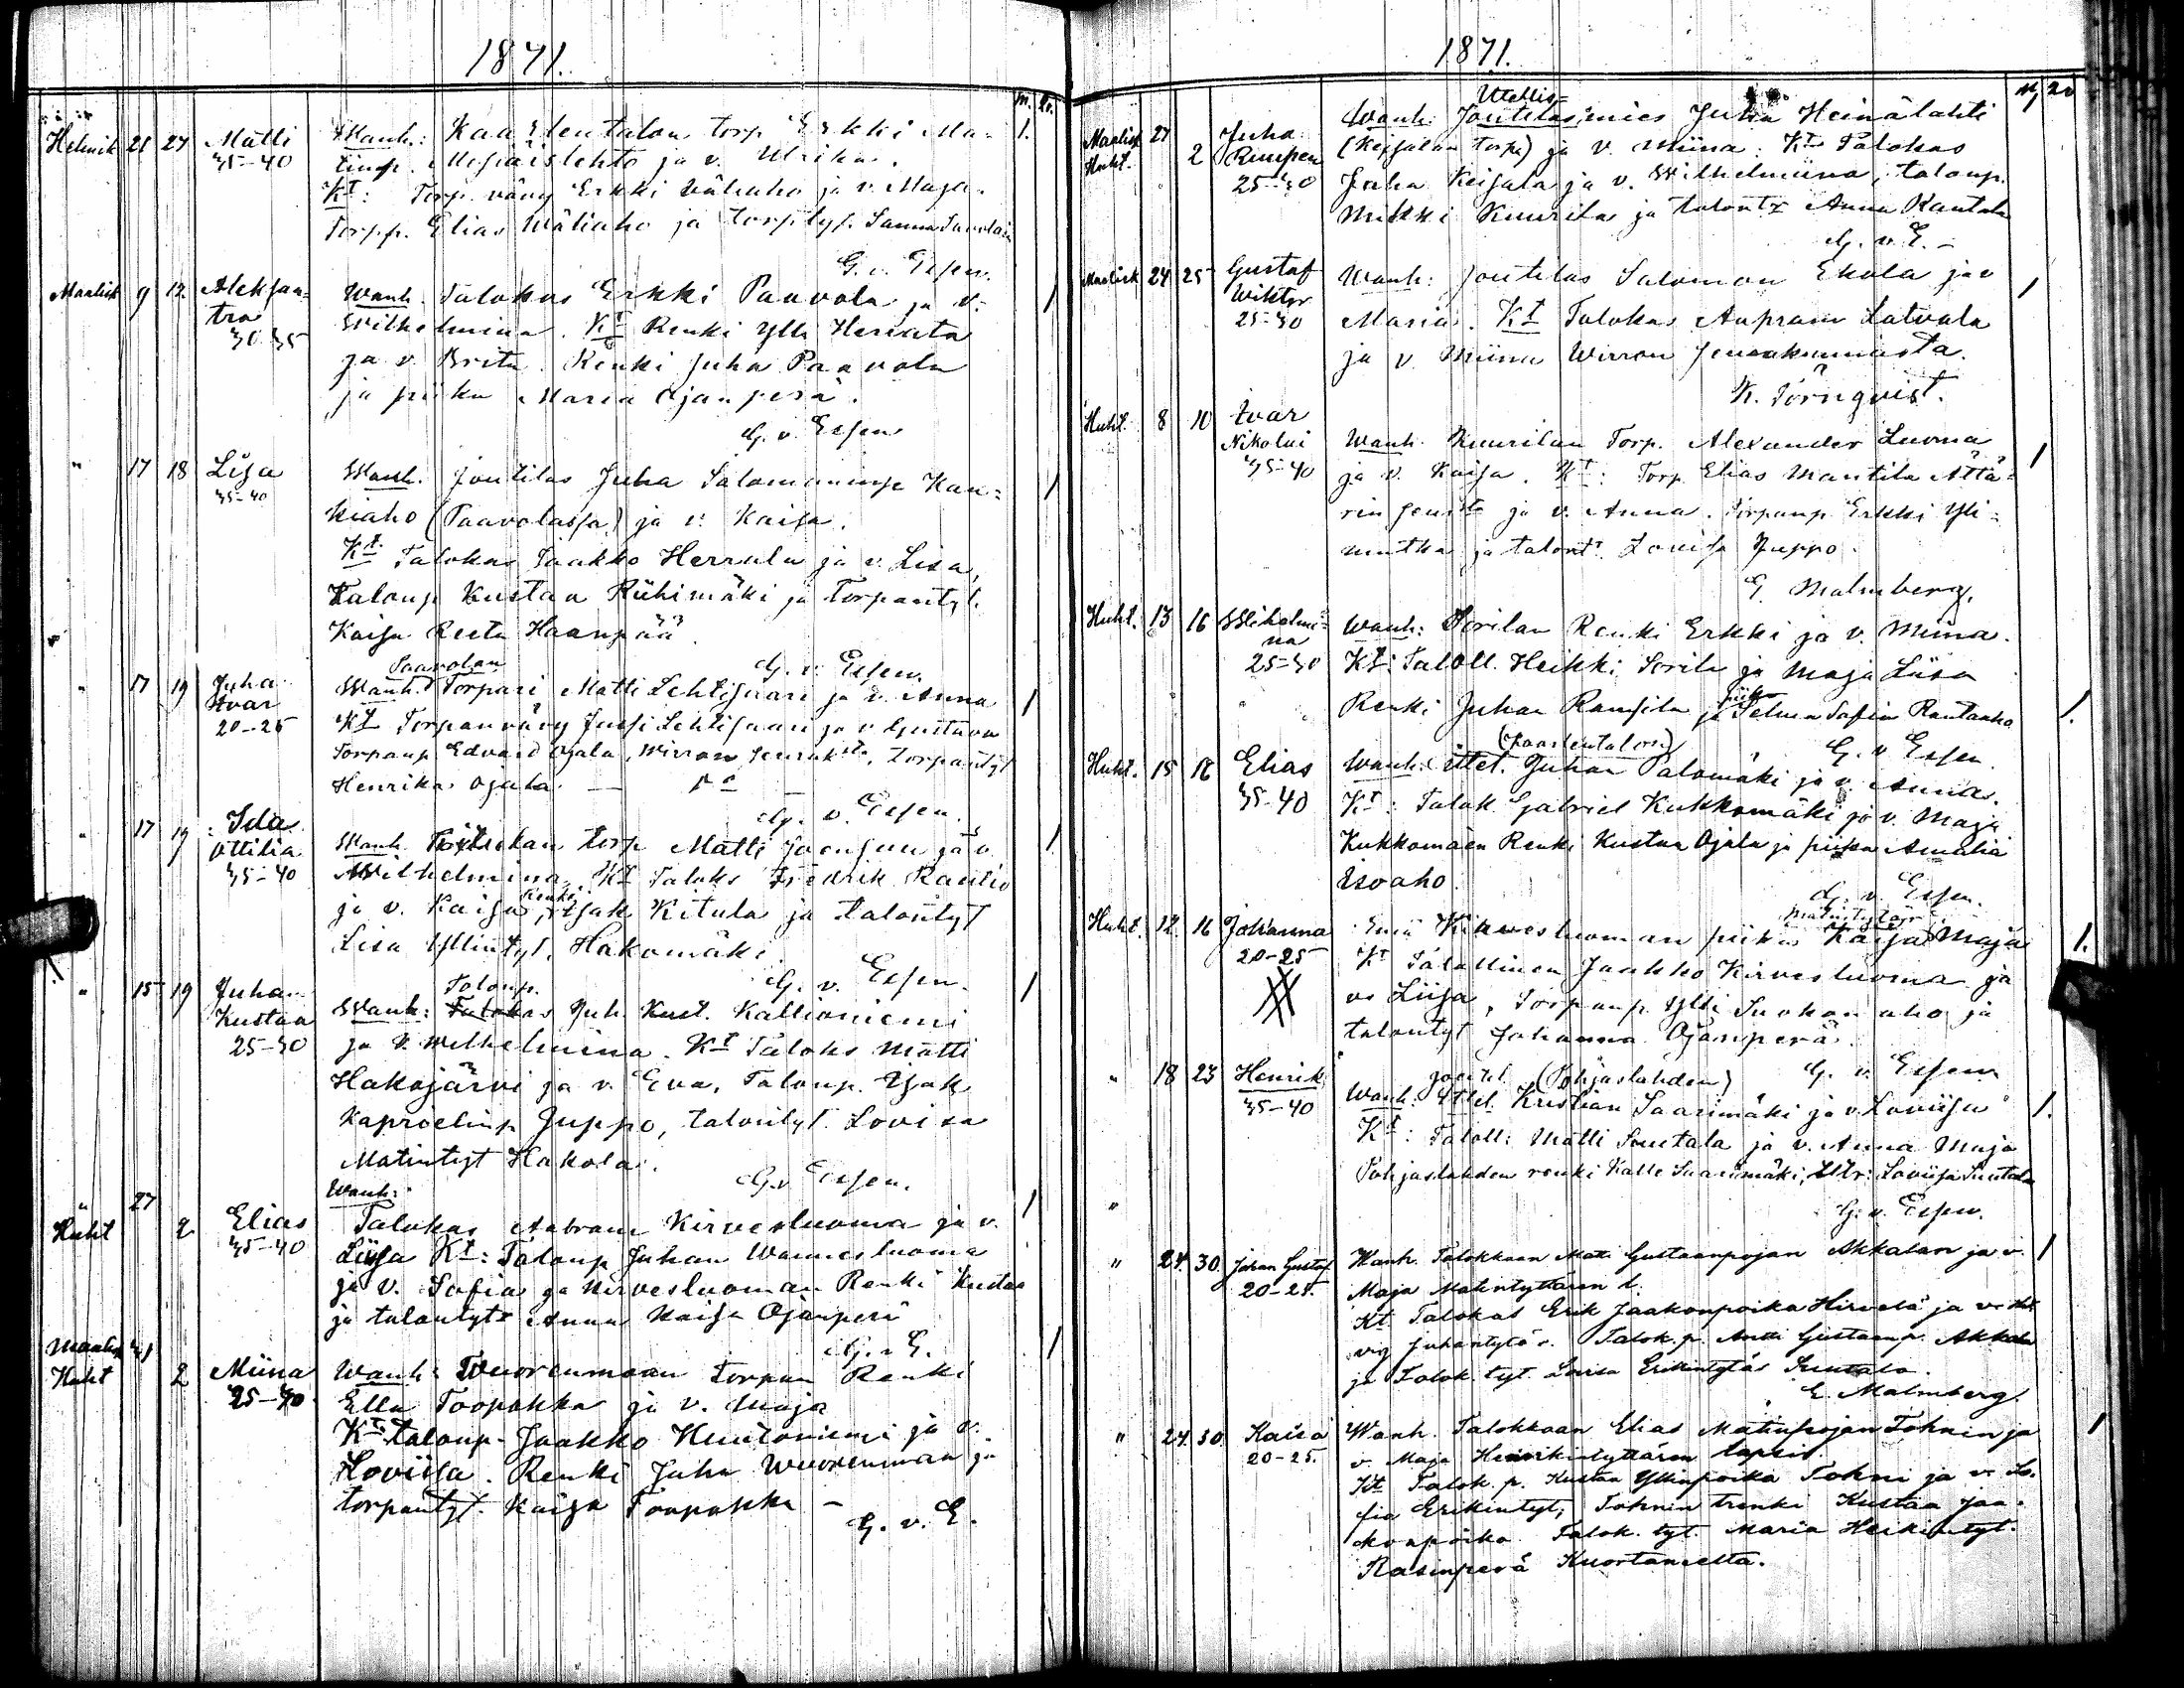 1871.
m. n.
Helmik 21 27 Matti Wanh.: Kaarlentalon torp. Erkki Ma- 1.
35–40 tinp. Mesiäislehto ja v. Ulrika.
Kt: Torp. vävy Erkki Wäliaho ja v. Maja.
Torpp. Elias Wäliaho ja torp.tyt. Sanna
G. v. Essen.
Maalisk 9 12. Aleksan- Wanh. Talokas Erkki Paavola ja v. 1
tra Wilhelmina. Kt Renki Ylli Heriata
30–35 ja v. Brita. Renki Juha Paavola
ja piika Maria Ojanperä.
G. v. Essen
" 17 18 Lisa Wanh. Joutilas Juha Salomoninp. Kan- 1
35–40 kiaho (Paavolassa) ja v. Kaisa.
Kt Talokas Jaakko Herrala ja v. Lisa,
Taloup Kustaa Riihimäki ja Torpantyt.
Kaisa Reeta Haanpää.
G. v. Essen.
Paavolan
" 17 19 Juha Wanh. Torpari Matti Lehtisaari ja v. Anna 1
Ivar Kt Torpanvävy Jussi Lehtisaari ja v. Gustava
20–25 Torpanp. Edvard Ojala, Wirron seuraksta, Torpantyt
Henrika Ojala — Do —
G. v. Essen.
" 17 19 Ida Wanh. torp Matti ja v. 1
Ottilia Wilhelmina. Kt Taloks Fredrik Rautio
35–40 ja v. Kaisa, Renki Isak Kitula ja talontyt
Lisa Yllintyt. Hakomäki.
G. v. Essen.
Taloup.
" 15 19 Juha Wanh: Talokas Juh. Kust. Kallioniemi 1
Kustaa ja v. Wilhelmina. Kt Taloks Matti
25–30 Hakojärvi ja v. Eva, Taloup. Isak
Kaprielinp Juppo, talontyt. Lovisa
Matintyt Hakola.
G. v. Essen.
" 27 Wanh:
Huht 2 Elias Talokas Aabram Kirvesluoma ja v. 1
35–40 Liisa Kt: Taloup Juhan Wannesluoma
ja v. Sofia ja Kirvesluoman Renki Kustaa
ja talontyt Anna Kaisa Ojanperä
G. v. E.
Maalisk 31
Huht 2 Miina Wanh: Wuorenmaan torpan Renki 1
25–30. Ella Toopakka ja v. Maja
Kt taloup. Jaakko Huntoniemi ja v.
Loviisa. Renki Juha Wuorenmaa ja
torpantyt. Kaisa Toopakka –
G. v. E.
1871.
Utellis-
Maalisk 27 Juha Wanh: Joutilas mies Juha Heinälahti
Huht. 2 Rimpen (Keisalan torp.) ja v. Miina. Kt Talokas
25–30 Juha Keisala ja v. Wilhelmiina, taloup.
Mikki Kuurila ja talontr Anna Rantala
G. v. E. –
Maalisk 24 25 Gustaf Wanh: Joutilas Salomon Ekola ja v 1
Wiktor Maria. Kt Talokas Aapram Latvala
25–30 ja v. Miina Wirron seurakunnasta.
K. Törnqvist.
Huht. 8 10 Ivar
Nikolai Wanh. Kuurilan Torp. Alexander Luoma 1
35–40 ja v. Kaisa. Kt: Torp Elias Mantila Ättä-
rin seursta ja v. Anna. Torpanp Erkki Yli-
mutka ja talont. Lovisa Juppo.
E. Malmberg.
Huht. 13 16 Wilhelmi- Wanh: Sorilan Renki Erkki ja v. Miina.
na
25–30 Kt: Taloll. Heikki Sorila ja Maja Liisa
Renki Juhan Ransila ja piika Selma Sofia Rantaaho 1.
(Kaarlentalon)
G. v Essen.
Huht. 15 16 Elias Wanh: ittel. Juhan Palomäki ja v. Anna.
35–40 Kt: Talok Gabriel Kukkomäki ja v. Maja
Kukkomäen Renki Kustaa Ojala ja piika Amalia
Isoaho.
G. v. Essen.
Matintytär
Huht. 12. 16 Johanna Emä Kirvesluoman piika Kaisa Maja 1.
20–25 Kt Talollinen Jaakko Kirvesluoma ja
vo Liisa, Torpanp. Ylli Suokonaho ja
talontyt Johanna Ojanperä.
G. v. Essen
jootel. (Pohjaslahden)
" 18 23 Henrik Wanh: Ittel. Kristian Saarimäki ja v Loviisa 1.
35–40 Kt: Taloll: Matti Soutala ja v. Anna Maja
Pohjaslahden renki Kalle Saarimäki, Ittr: Loviisa Suutala
" G. v. Essen.
" 24. 30. Johan Gustaf Wanh. Talokkaan Mati Gustaanpojan Akkalan ja v. 1
20–25. Maja Matintyttären l.
Kt Talokas Erik Jaakonpoika Hirvelä ja v.
Juhantytär. Talok. p. Antti Gustaanp. Akkala
ja Talok. tyt. Lovisa Erikintytär Suutala.
E. Malmberg.
" 24. 30 Kaisa Wanh. Talokkaan Elias Matinpojan Tohnin ja 1
20–25. v. Maja Henrikintyttären lapsi.
Kt Talok. p. Kustaa Yllinpoika Tohni ja v. So-
fia Erikintyt, Tohnin trenki Kustaa Jaa-
konpoika Talok. tyt. Maria Heikintyt.
Rasinperä Kuortaneelta.